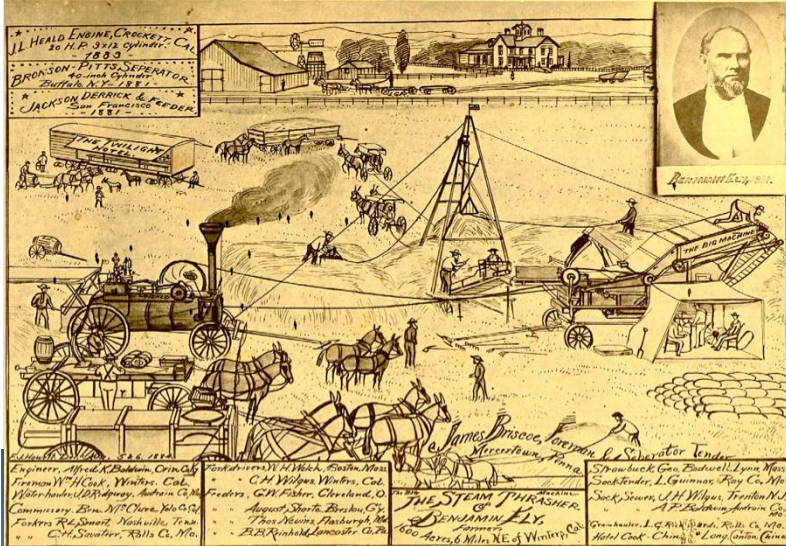 J.L. HEALD ENGINE, CROCKETT, CAL.
20 H.P. 9x12 Cylinder.
- 1883 -
BRONSON-PITTS, SEPERATOR
40-inch Cylinder
Buffalo, N.Y. 1881
JACKSON DERRICK & FEEDER,
San Francisco
- 1881 -
THE TWILIGHT
HOTEL
BENJAMIN ELY,
HEALD
THE BIG MACHINE
James Briscoe, Foreman & Seperator Tender
Mercertown, Penna
Engineer, Alfred K. Baldwin,
Fireman Wm H Cook, Winters, Cal.
Water-hauler, J.D. Ridgway, Audrain Co, Mo
Commissary Ben McClure Yolo Co, Cal
Forkers R.L. Smart, Nashville Tenn.
" C.H. Ralls Co, Mo.
Forkdrivers W.H. Welch, Boston, Mass
" C H Wilgus, Winters, Cal.
Feeders, G.W. Fisher, Cleveland, O.
" August, Ger.
" Thos Nevins,
" B.B. Reinhold, Lancaster Co, Pa
The Big Machine
THE STEAM THRASHER
OF
BENJAMIN ELY,
Farmer,
1600 Acres, 6 Miles NE of Winters, Cal.
Strawbuck, Geo. Bodwell, Lynn, Mass
Sack Tender, L. Guinnar, Ray Co, Mo
Sack Sewer, J.H Wilgus, Trenton N.J.
" A.P. Baldwin, Audrain Co. Mo.
Grain hauler, L.G. Rickards, Ralls Co, Mo.
Hotel Cook - Ching Long, Canton, China